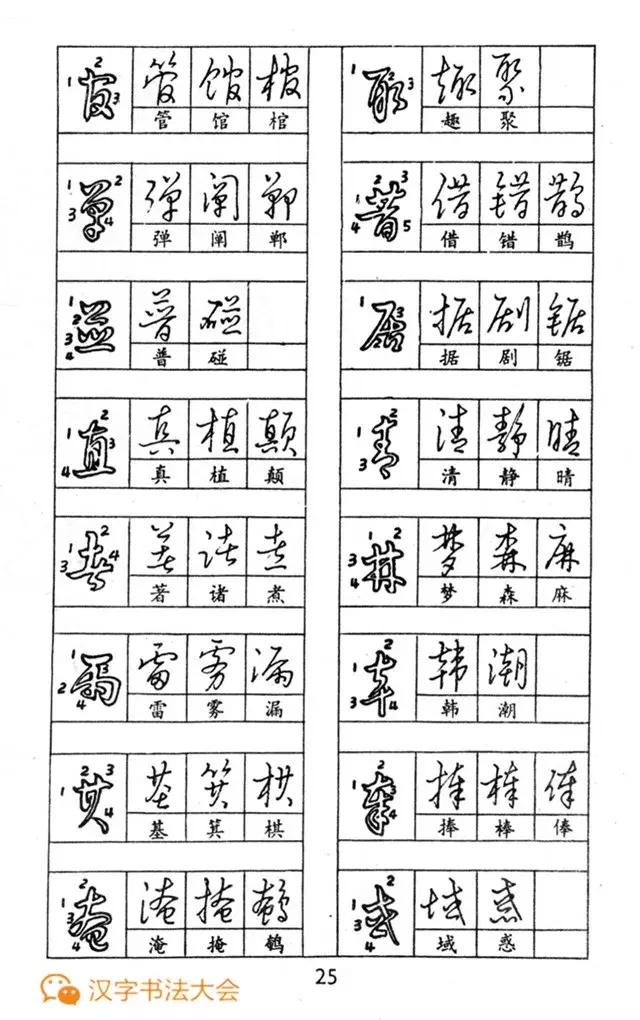 管 馆 棺
管 馆 棺
弹 阐 郸
弹 阐 郸
普 碰
普 碰
真 植 颠
真 植 颠
著 诸 煮
著 诸 煮
雷 雾 漏
雷 雾 漏
基 箕 棋
基 箕 棋
淹 掩 鹌
淹 掩 鹌
趣 聚
趣 聚
借 错 鹊
借 错 鹊
据 剧 锯
据 剧 锯
清 静 晴
清 静 晴
梦 森 麻
梦 森 麻
韩 潮
韩 潮
捧 棒 俸
捧 棒 俸
域 惑
域 惑
25
汉字书法大会